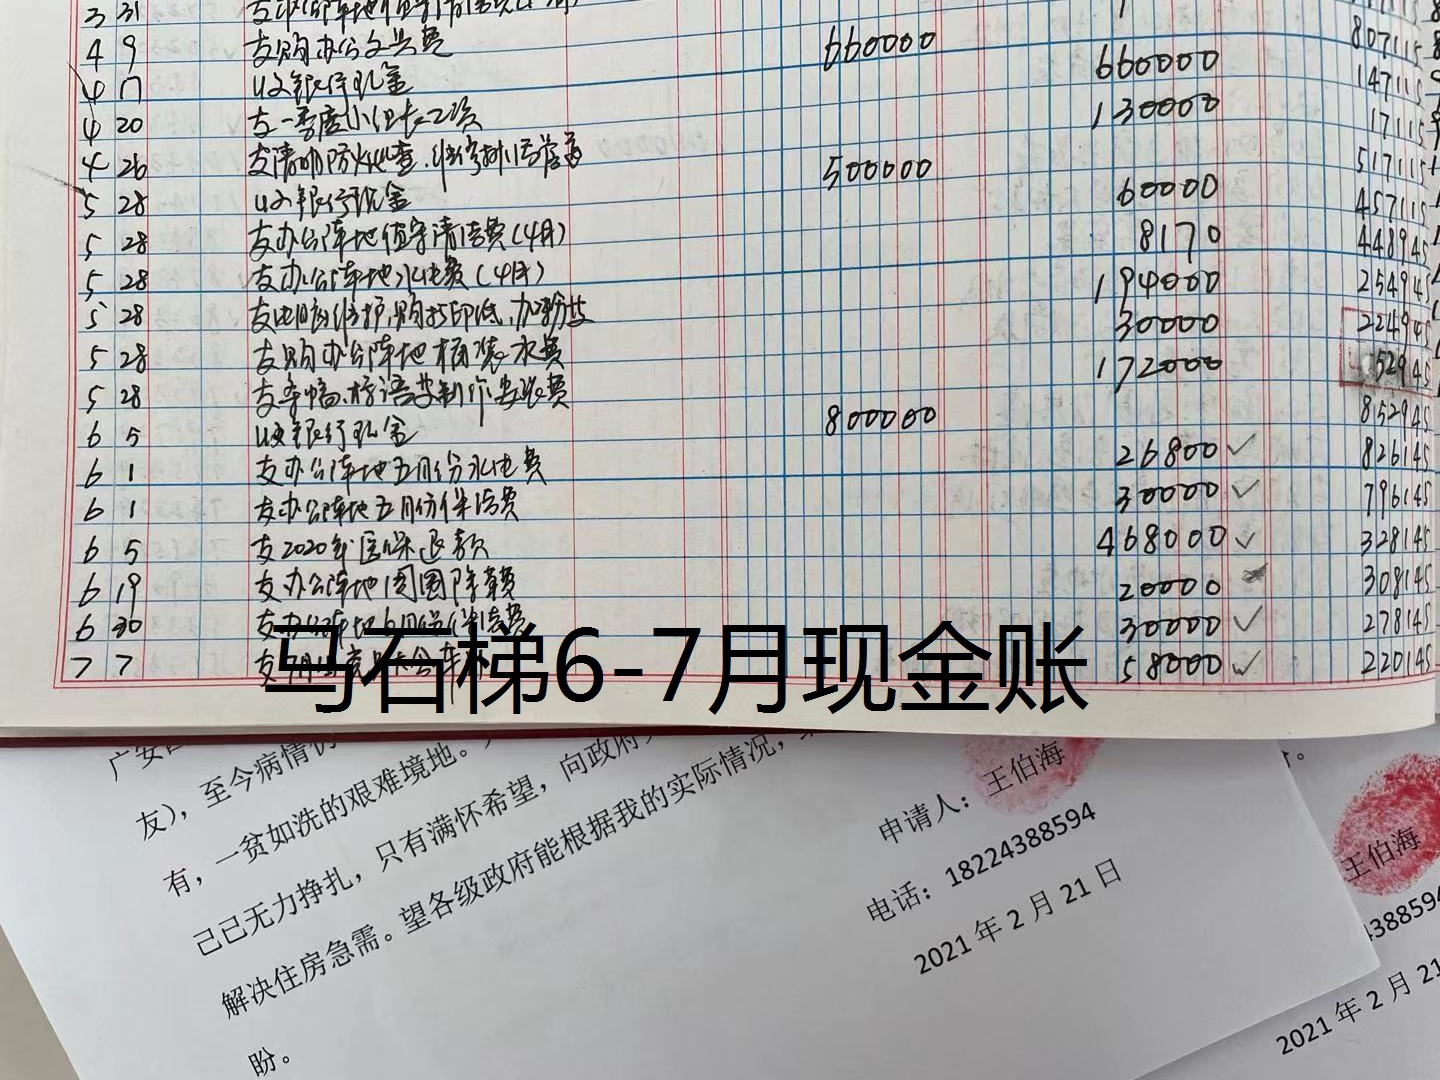 3 31
4 9 支购办公文具费 660000 807115
4 17 收银行现金 660000 147115
4 20 支一季度小组长工资 130000 17115
4 26 支清明防火检查、 500000 517115
5 28 收银行现金 60000 457115
5 28 支办公阵地值守清洁费(4月) 8170 448945
5 28 支办公阵地水电费(4月) 194000 254945
5 28 支电脑维护,购打印纸、加粉 30000 224945
5 28 支购办公阵地桶装水费 172000 52945
5 28 支 幅、标语 制作安装费
6 5 收银行现金 800000 852945
6 1 支办公阵地五月份水电费 26800 ✓ 826145
6 1 支办公阵地五月份保洁费 30000 ✓ 796145
6 5 支2020年医保退款 468000 ✓ 328145
6 19 支办公阵地周围除草费 20000 308145
6 30 支办公阵地6月份保洁费 30000 ✓ 278145
7 7 58000 ✓ 220145
马石梯6-7月现金账
广安
友),至今病情仍
有,一贫如洗的艰难境地。
己已无力挣扎,只有满怀希望,向政府
解决住房急需。望各级政府能根据我的实际情况,
盼。
申请人:王伯海
电话:18224388594
2021年2月21日
王伯海
4388594
2021年2月21